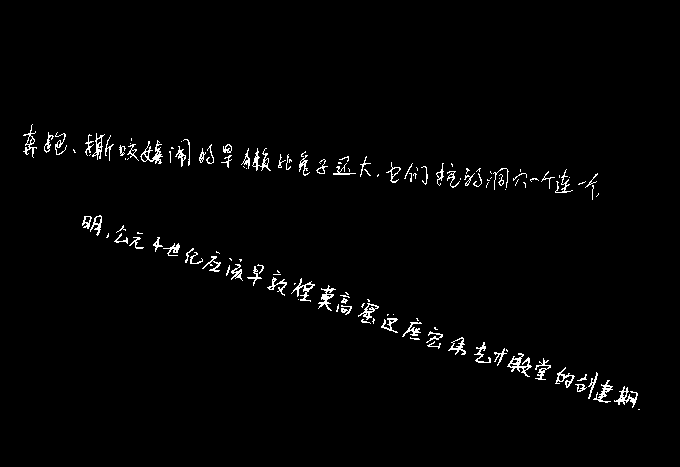 奔跑、撕咬嬉闹的旱獭比兔子还大,它们挖的洞穴一个连一个,
明,公元4世纪应该早敦煌莫高窟这座宏伟艺术殿堂的创建期.